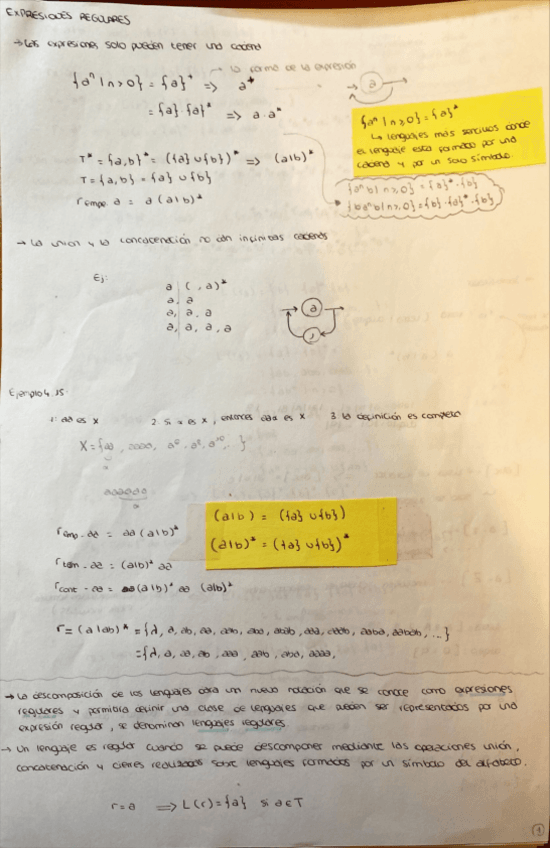 EXPRESIONES REGULARES
→ Las expresiones solo pueden tener una cadena
→ la forma de la expresión
{aⁿ | n>0} = {a}⁺ => a⁺
= {a} {a}* => a·a*
{aⁿ | n≥0} = {a}*
↳ lenguajes más sencillos donde
el lenguaje esta formado por una
cadena y por un solo símbolo.
T* = {a,b}* = ({a} ∪ {b})* => (a|b)*
T = {a,b} = {a} ∪ {b}
r empe. a = a (a|b)*
{aⁿb | n≥0} = {a}*·{b}
{baⁿb | n≥0} = {b}·{a}*·{b}
→ La union y la concatenación no dan infinitas cadenas
Ej:
a (, a)*
a, a
a, a, a
a, a, a, a
a
,
Ejemplo 4.15:
1. aa es X
2. Si α es X, entonces aaα es X
3. la definición es completa
X = {aa, aaaa, a⁶, a⁸, a¹⁰, ...}
aaaaaa
r emp - aa = aa (a|b)*
r term - aa = (a|b)* aa
r cont - aa = (a|b)* aa (a|b)*
(a|b) = ({a} ∪ {b})
(a|b)* = ({a} ∪ {b})*
r = (a|ab)* = {λ, a, ab, aa, aab, aba, abab, aaa, aaab, aaba, aabab, ...}
= {λ, a, aa, ab, aaa, aab, aba, aaaa,
→ La descomposición de los lenguajes abra un nueva notación que se conoce como expresiones
regulares y permitira definir una clase de lenguajes que pueden ser representados por una
expresión regular, se denominan lenguajes regulares.
→ Un lenguaje es regular cuando se puede descomponer mediante las operaciones unión,
concatenación y cierres realizadas sobre lenguajes formados por un símbolo del alfabeto.
r = a => L(r) = {a} si a ∈ T
1